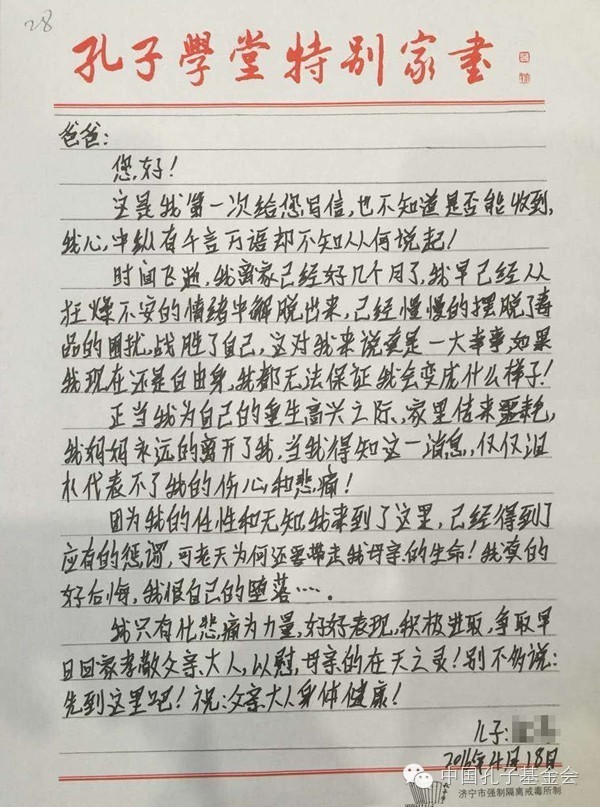 28
孔子學堂特别家书
爸爸:
您好!
这是我第一次给您写信,也不知道是否能收到,
我心中纵有千言万语却不知从何说起!
时间飞逝,我离家已经好几个月了,我早已经从
狂燥不安的情绪中解脱出来,已经慢慢的摆脱了毒
品的困扰,战胜了自己,这对我来说真是一大幸事,如果
我现在还是自由身,我都无法保证我会变成什么样子!
正当我为自己的重生高兴之际、家里传来噩耗,
我妈妈永远的离开了我,当我得知这一消息,仅仅泪
水代表不了我的伤心和悲痛!
因为我的任性和无知,我来到了这里,已经得到了
应有的惩罚,可老天为何还要带走我母亲的生命!我真的
好后悔,我恨自己的堕落……。
我只有化悲痛为力量,好好表现,积极进取,争取早
日回家孝敬父亲大人,以慰母亲的在天之灵!别不多说:
先到这里吧!祝:父亲大人身体健康!
儿子:
2016年4月18日
中国孔子基金会
济宁市强制隔离戒毒所制